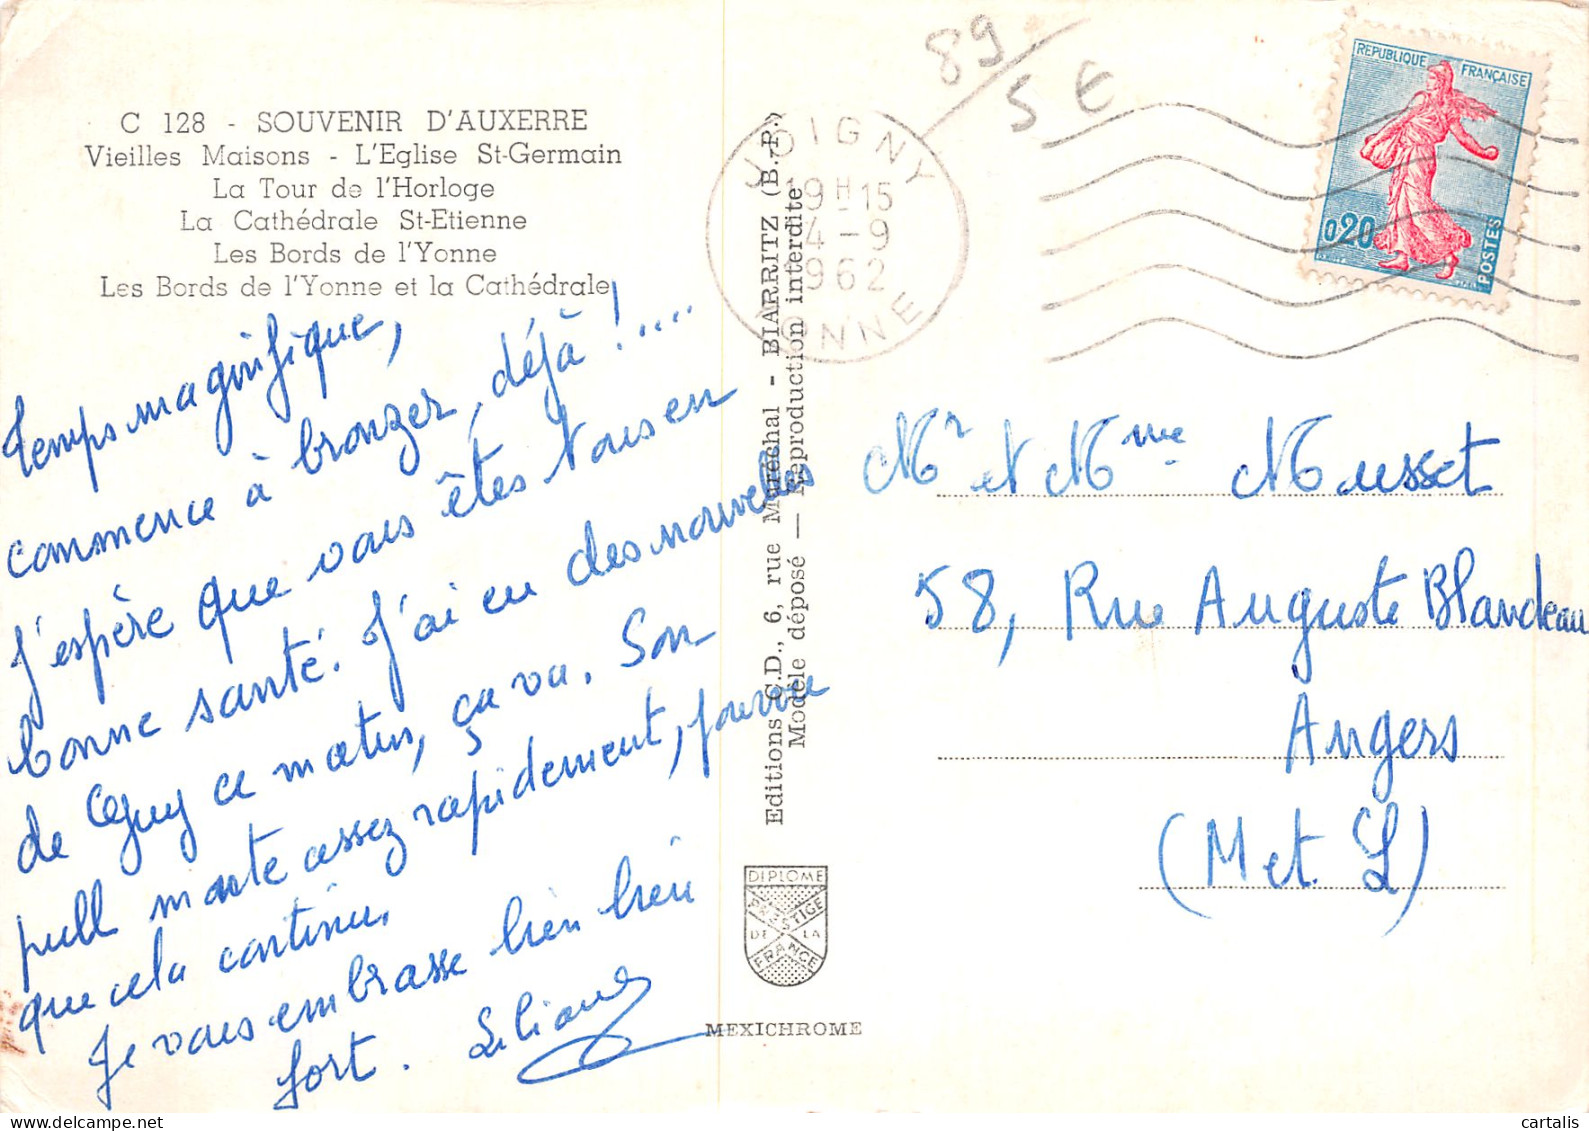 C 128 - SOUVENIR D'AUXERRE
Vieilles Maisons - L'Eglise St-Germain
La Tour de l'Horloge
La Cathédrale St-Etienne
Les Bords de l'Yonne
Les Bords de l'Yonne et la Cathédrale
Temps magnifique,
commence à bronzer, déjà !....
J'espère que vous êtes tous en
bonne santé. J'ai eu des nouvelles
de Guy ce matin, ça va. Son
pull monte assez rapidement, pourvu
que cela continue.
Je vous embrasse bien bien
fort. Liliane
Editions C.D., 6, rue Maréchal - BIARRITZ (B.-P.)
Modèle déposé — Reproduction interdite
DIPLOME
PRESTIGE
DE LA
FRANCE
MEXICHROME
89
5 €
JOIGNY
19H15
4-9
1962
YONNE
REPUBLIQUE FRANÇAISE
0,20
POSTES
Mr et Mme Musset
58, Rue Auguste Blandeau
Angers
(M et L)
cartalis.com